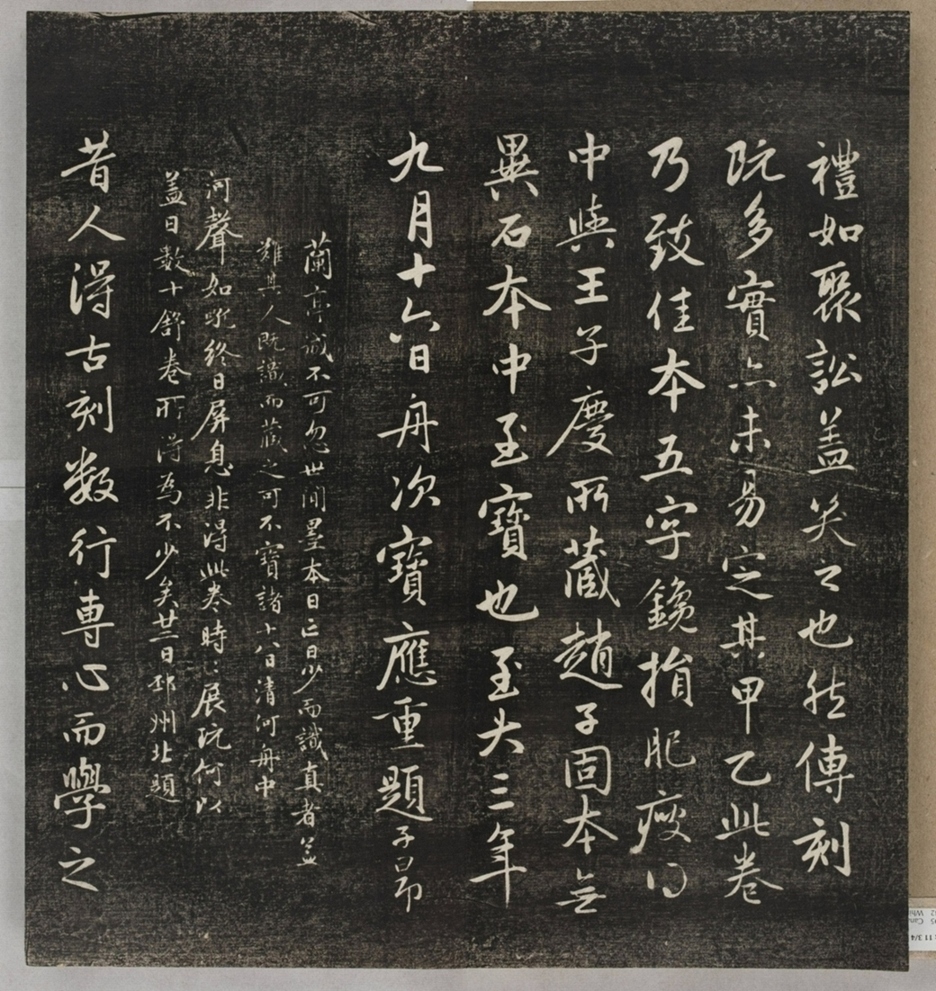 禮如聚訟盖笑之也然傳刻
既多實亦未易定其甲乙此卷
乃致佳本五字鑱損肥瘦得
中與王子慶所藏趙子固本無
異石本中至寶也至大三年
九月十六日舟次寶應重題子昂
蘭亭誠不可忽世間墨本日亡日少而識真者益
難其人既識而藏之可不寶諸十八日清河舟中
河聲如吼終日屏息非得此卷時時展玩何以
盖日數十舒卷所得為不少矣廿二日邳州北題
昔人得古刻数行專心而學之